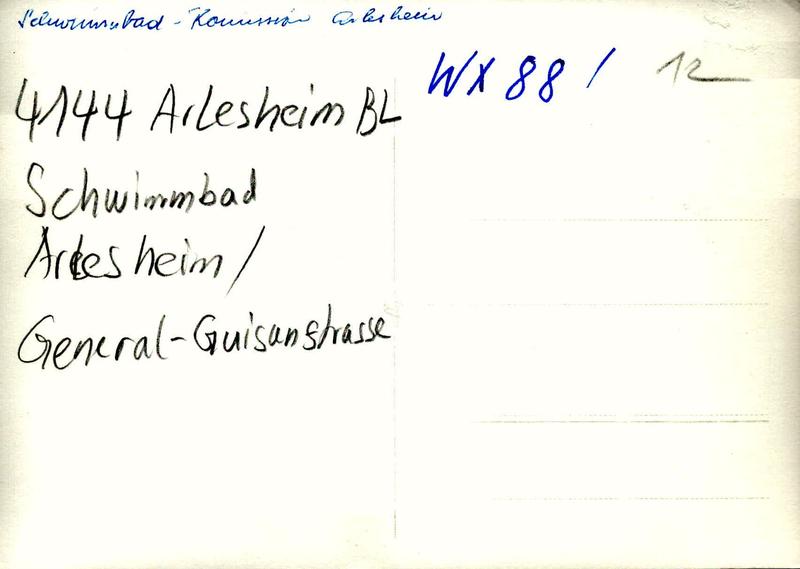 Schwimmbad-Komission Arlesheim
WX 88 /
12
4144 Arlesheim BL
Schwimmbad
Arlesheim /
General-Guisanstrasse